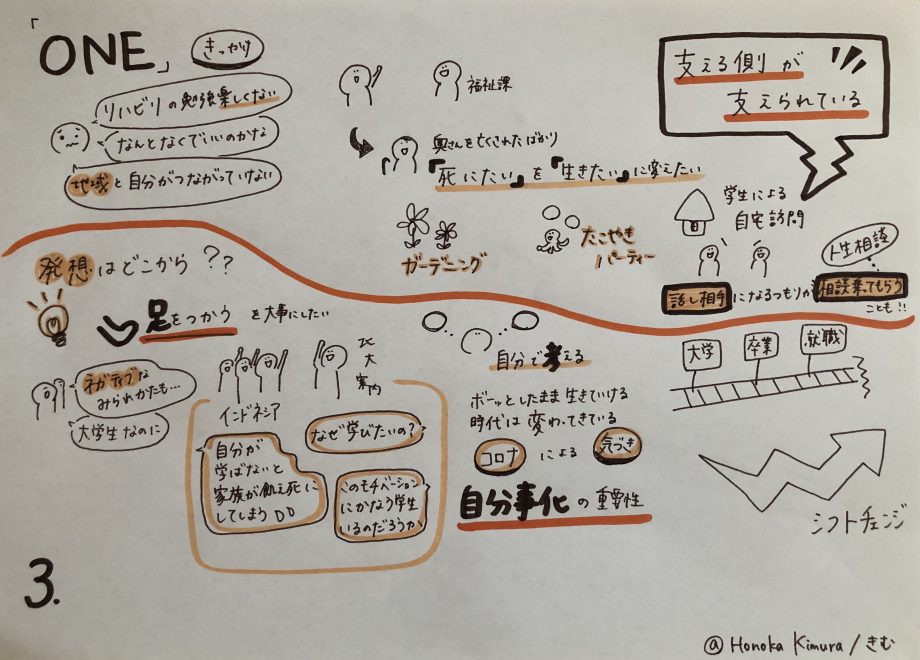 「ONE」
きっかけ
リハビリの勉強楽しくない
なんとなくでいいのかな
地域と自分がつながっていない
福祉課
奥さんを亡くされたばかり
『死にたい』を『生きたい』に変えたい
ガーデニング
たこやき
パーティー
支える側が
支えられている
学生による
自宅訪問
人生相談
話し相手になるつもりが相談乗ってもらう
ことも!!
発想はどこから??
足をつかう を大事にしたい
ネガティブな
みられかたも…
大学生なのに
インドネシア
北大案内
自分が
学ばないと
家族が飢え死に
してしまう
なぜ学びたいの?
このモチベーション
にかなう学生
いるのだろうか
自分で考える
ボーッとしたまま生きていける
時代は変わってきている
コロナ による 気づき
自分事化の重要性
大学
卒業
就職
シフトチェンジ
3.
@Honoka Kimura/きむ